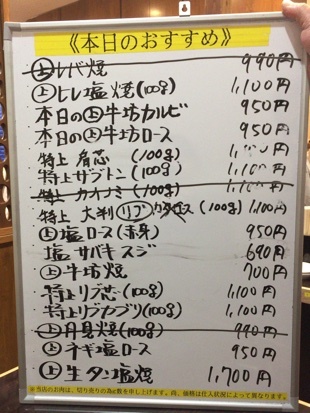 《本日のおすすめ》
㊤レバ焼 990円
㊤ヒレ塩焼(100g) 1,100円
本日の㊤牛坊カルビ 950円
本日の㊤牛坊ロース 950円
特上 肩芯 (100g) 1,100円
特上サブトン(100g) 1,100円
特上 カイノミ(100g) 1,100円
特上 大判 リブ ロース (100g) 1,100円
㊤塩ロース(赤身) 950円
塩 サバキスジ 690円
㊤牛坊焼 700円
特上リブ芯(100g) 1,100円
特上リブカブリ(100g) 1,100円
㊤月見焼(100g) 990円
㊤ネギ塩ロース 950円
㊤生タン塩焼 1,700円
※当店のお肉は、切り売りの為g数を申し上げます。尚、価格は仕入状況によって異なります。